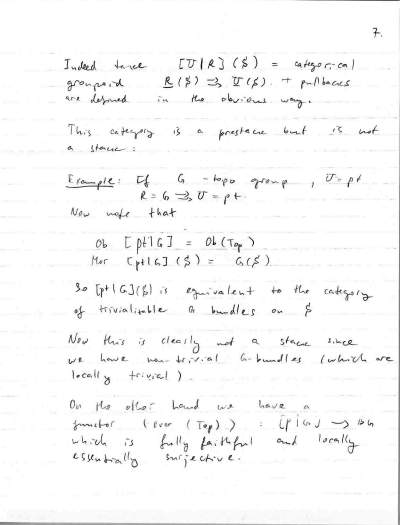 7.
Indeed take [U|R]($) = categorical
groupoid R($) ⇉ U($). + pullbacks
are defined in the obvious way.
This category is a prestack but is not
a stack:
Example: If G - topo group, U = pt
R = G ⇉ U = pt.
Now note that
Ob [pt|G] = Ob(Top)
Mor [pt|G]($) = G($)
So [pt|G]($) is equivalent to the category
of trivializable G bundles on $
Now this is clearly not a stack since
we have non-trivial G-bundles (which are
locally trivial).
On the other hand we have a
functor (over (Top)) : [pt|G] → BG
which is fully faithful and locally
essentially surjective.